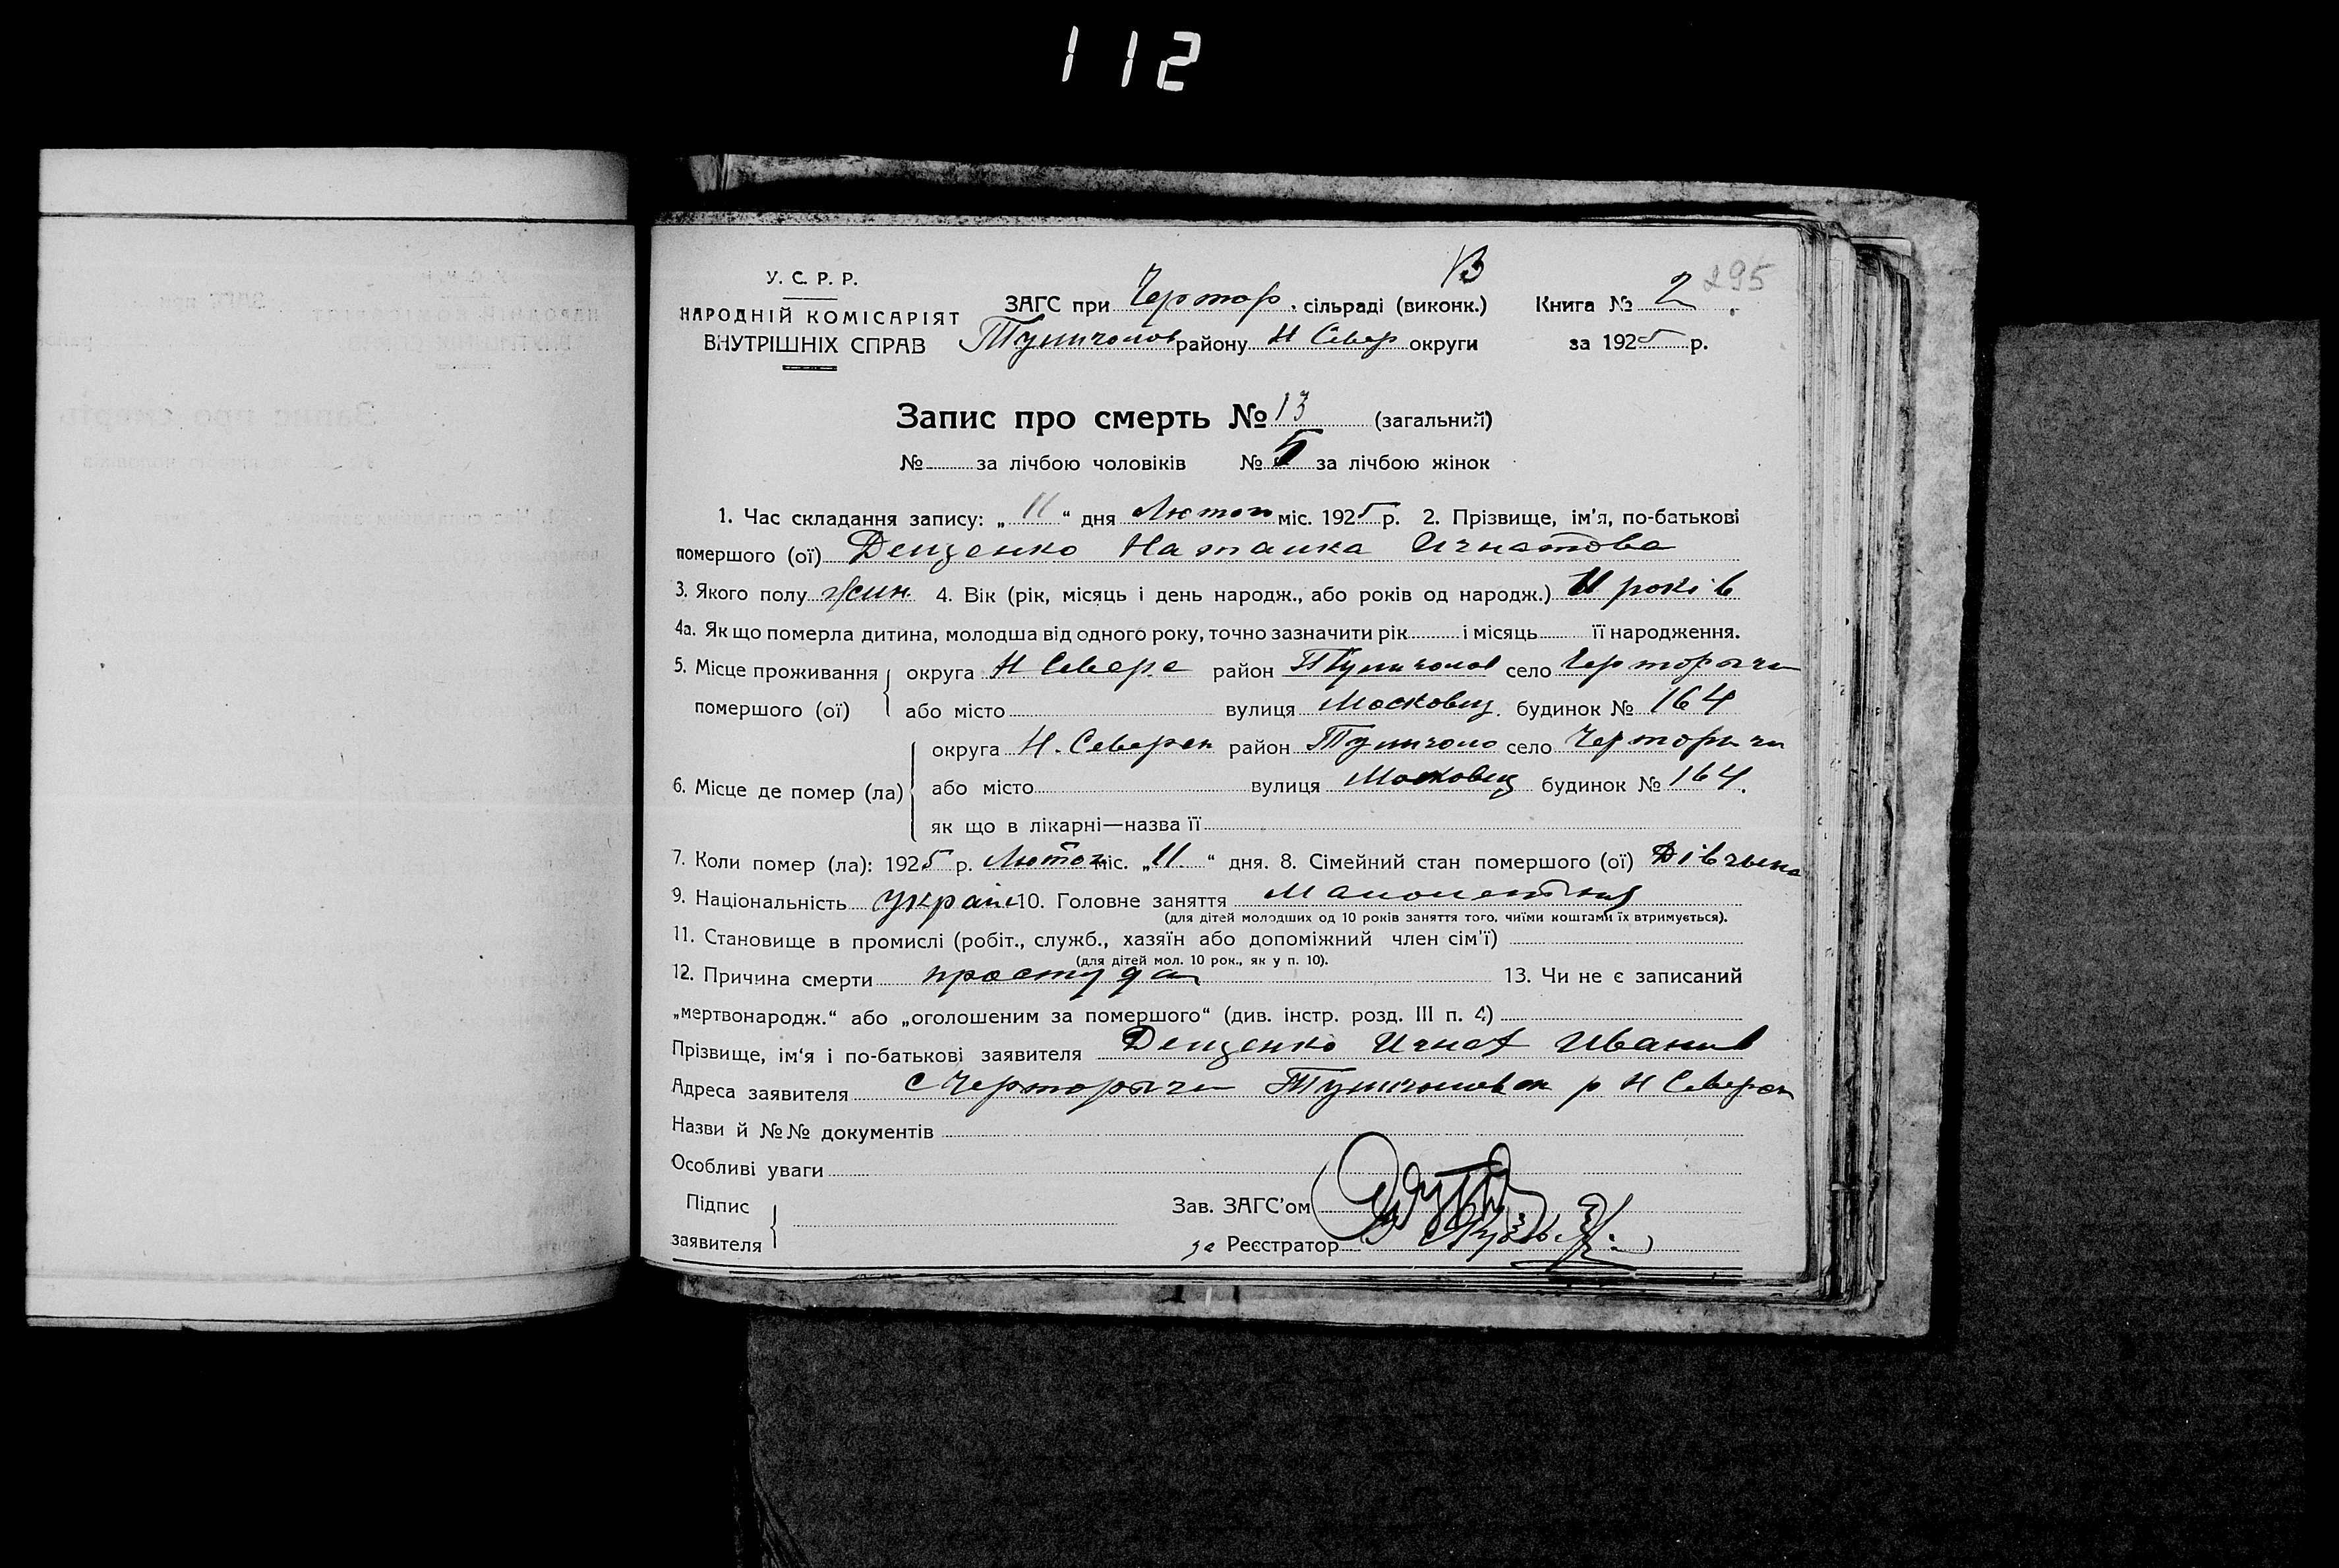 112
13
295
У. С. Р. Р.
НАРОДНІЙ КОМІСАРІЯТ
ВНУТРІШНІХ СПРАВ
ЗАГС при Чертор. сільраді (виконк.) Книга № 2
району Н Север округи за 1925 р.
Запис про смерть № 13 (загальний)
№ за лічбою чоловіків № 5 за лічбою жінок
1. Час складання запису: „ 11 “ дня Лютого міс. 1925 р. 2. Прізвище, ім'я, по-батькові
помершого (ої) Дещенко Наталка Игнатова
3. Якого полу жин 4. Вік (рік, місяць і день народж., або років од народж.) 11 років
4а. Як що померла дитина, молодша від одного року, точно зазначити рік і місяць її народження.
5. Місце проживання округа Н Север район село Черторыги
помершого (ої) або місто вулиця Московщ. будинок № 164
округа Н. Северск район село Черторыги
6. Місце де помер (ла) або місто вулиця Московщ будинок № 164.
як що в лікарні—назва її
7. Коли помер (ла): 1925 р. Лютого міс. „ 11 “ дня. 8. Сімейний стан помершого (ої) Дівчина
9. Національність украін 10. Головне заняття
(для дітей молодших од 10 років заняття того, чиїми коштами їх втримується).
11. Становище в промислі (робіт., служб., хазяїн або допоміжний член сім'ї)
(для дітей мол. 10 рок., як у п. 10).
12. Причина смерти простуда 13. Чи не є записаний
„мертвонародж.“ або „оголошеним за помершого“ (див. інстр. розд. III п. 4)
Прізвище, ім'я і по-батькові заявителя Дещенко Игнат Иванов
Адреса заявителя с Черторыги р Н Северск
Назви й №№ документів
Особливі уваги
Підпис
заявителя
Зав. ЗАГС'ом
за Реєстратор